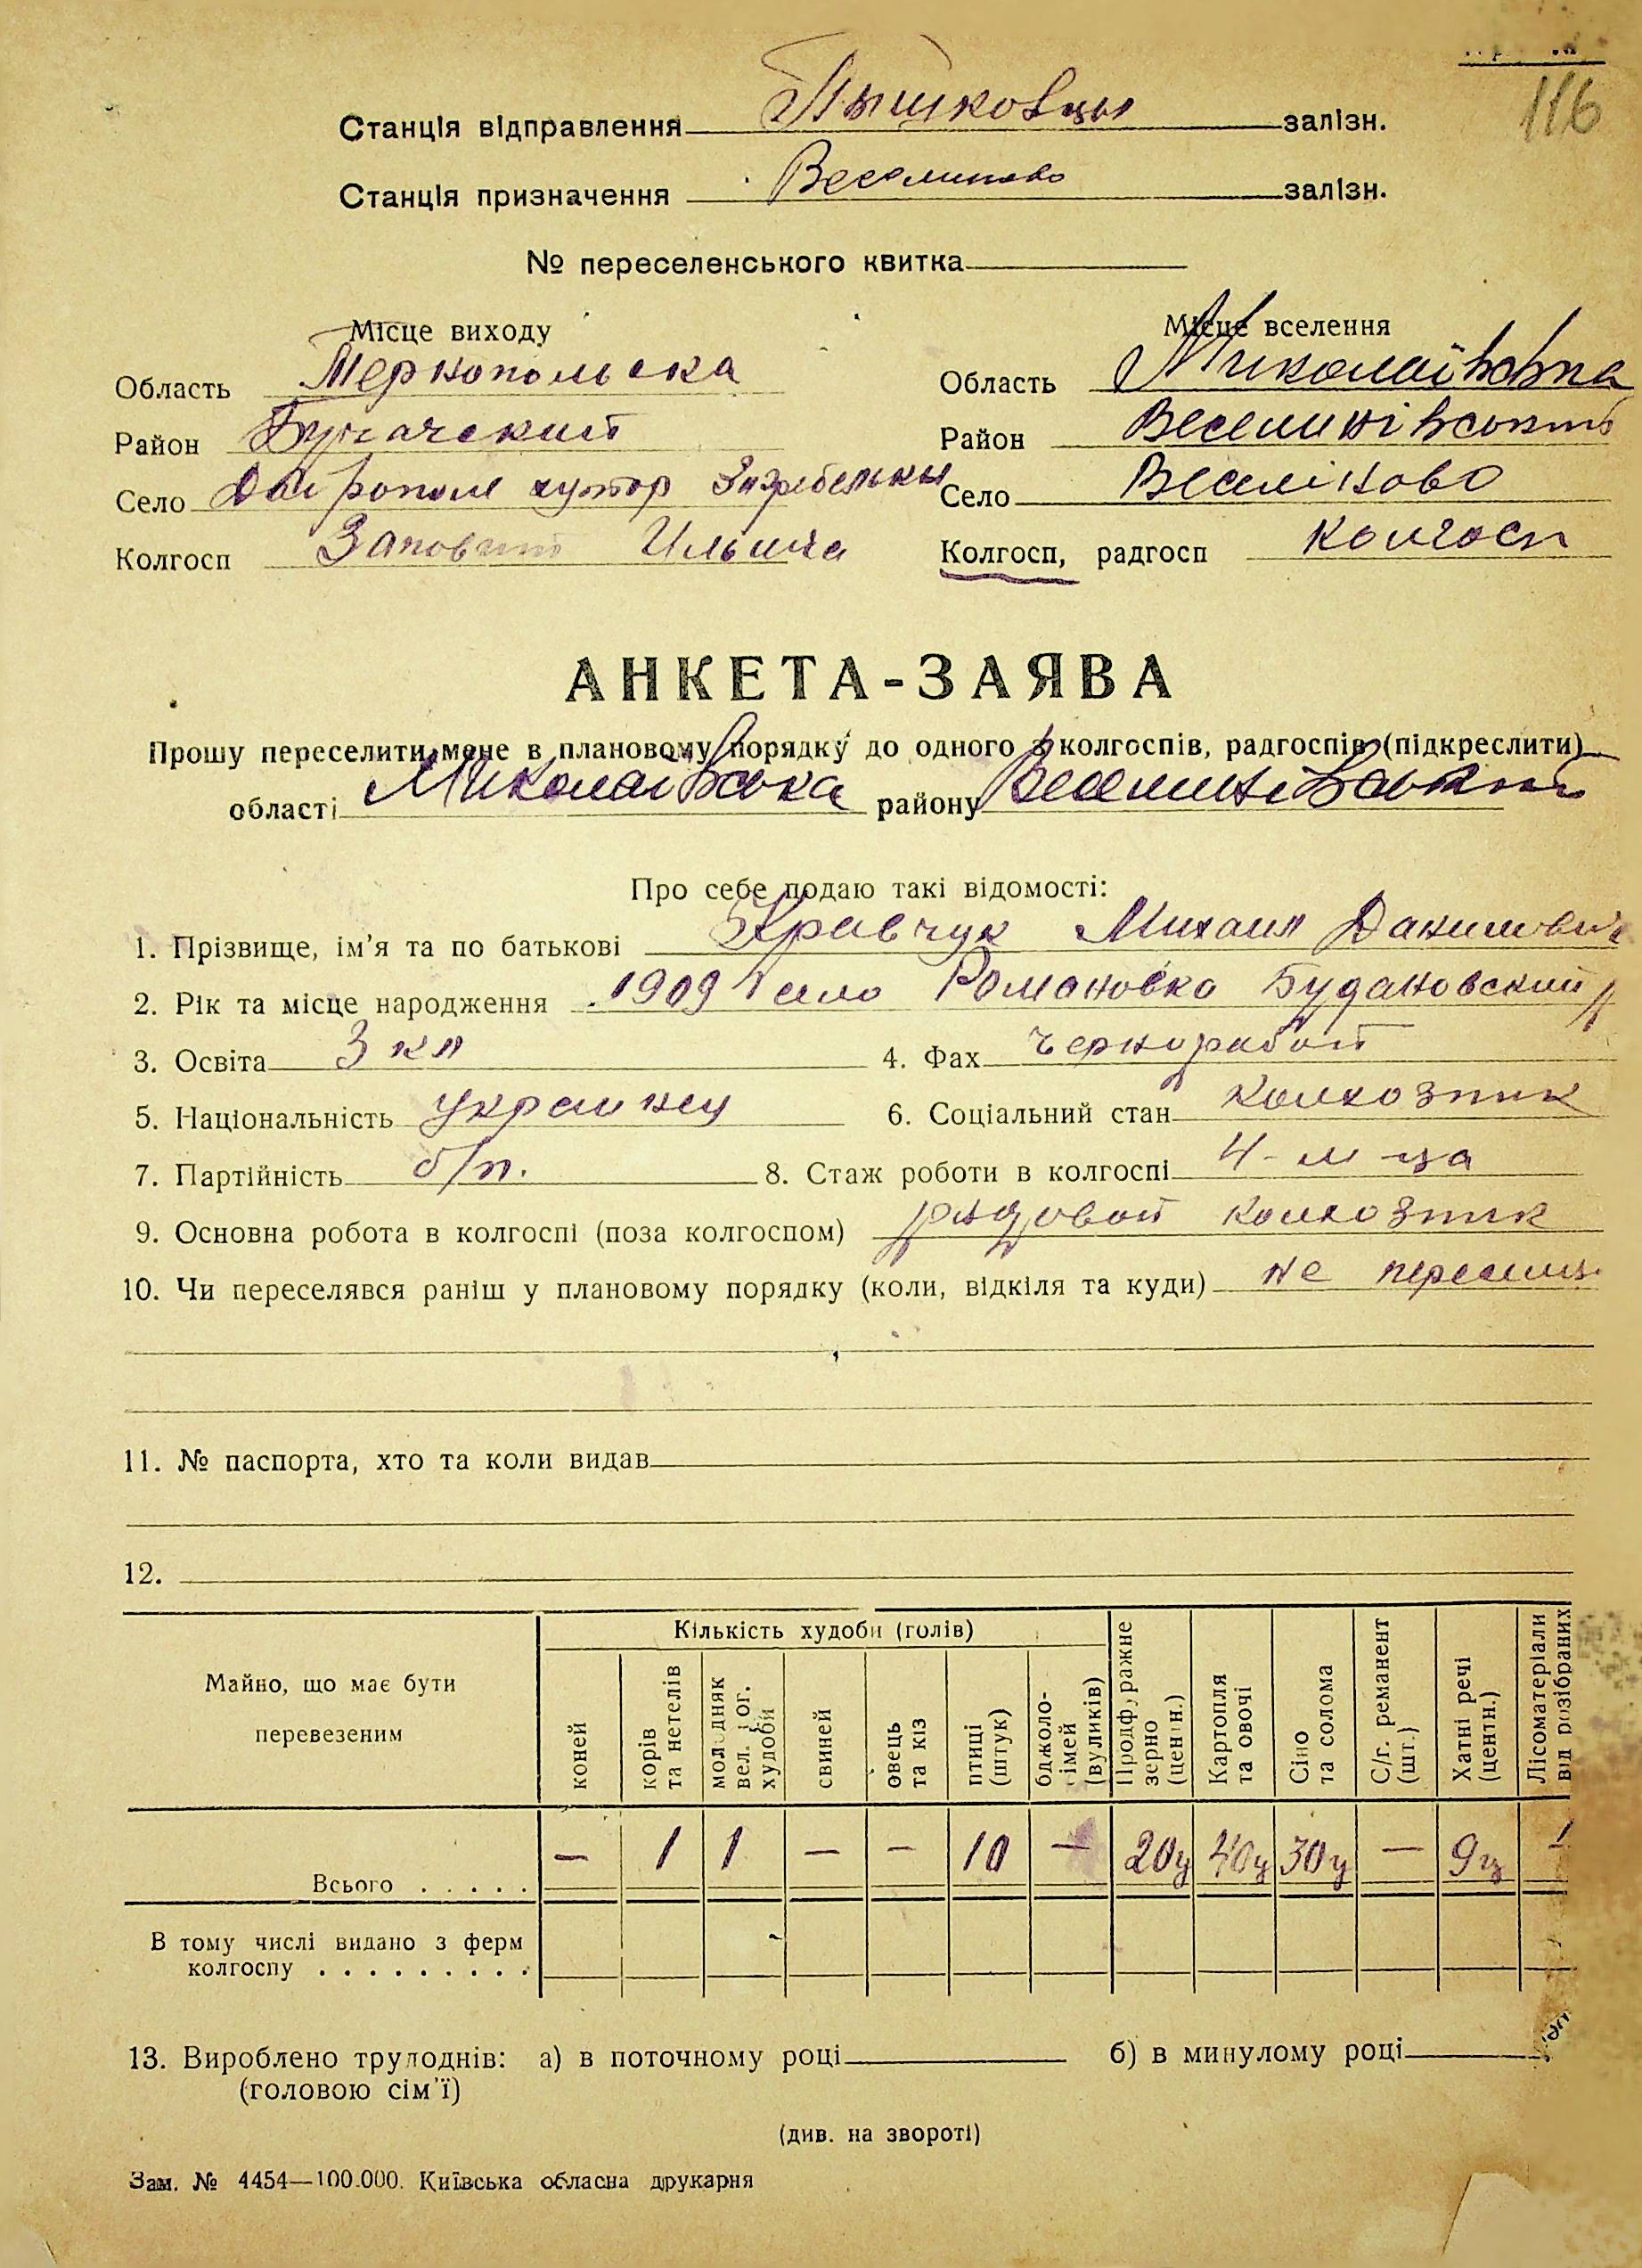 116
Станція відправлення Пышковцы залізн.
Станція призначення Веселиново залізн.
№ переселенського квитка
Місце виходу
Область Тернопольска
Район Бучачский
Село хутор Загребельки
Колгосп Заповит Ильича
Місце вселення
Область Миколаївська
Район Веселинівський
Село Веселіново
Колгосп, радгосп колгосп
АНКЕТА-ЗАЯВА
Прошу переселити мене в плановому порядку до одного з колгоспів, радгоспів (підкреслити)
області Миколаївська району Веселинівський
Про себе подаю такі відомості:
1. Прізвище, ім’я та по батькові Кравчук Михаил Данилович
2. Рік та місце народження 1909 село Романовка Будановский р
3. Освіта 3 кл 4. Фах чернорабоч
5. Національність украинец 6. Соціальний стан колхозник
7. Партійність б/п. 8. Стаж роботи в колгоспі 4-м-ца
9. Основна робота в колгоспі (поза колгоспом) рядовой колхозник
10. Чи переселявся раніш у плановому порядку (коли, відкіля та куди) не
11. № паспорта, хто та коли видав
12.
Майно, що має бути перевезеним
Кількість худоби (голів)
коней
корів та нетелів
молодняк вел. рог. худоби
свиней
овець та кіз
птиці (штук)
бджоло-сімей (вуликів)
Продфуражне зерно (центн.)
Картопля та овочі
Сіно та солома
С/г. реманент (шт.)
Хатні речі (центн.)
Лісоматеріали від розібраних
Всього . . . . . — 1 1 — — 10 — 20ц 40ц 30ц — 9ц
В тому числі видано з ферм
колгоспу . . . . . . . . .
13. Вироблено трудоднів: а) в поточному році б) в минулому році
(головою сім’ї)
(див. на звороті)
Зам. № 4454—100.000. Київська обласна друкарня